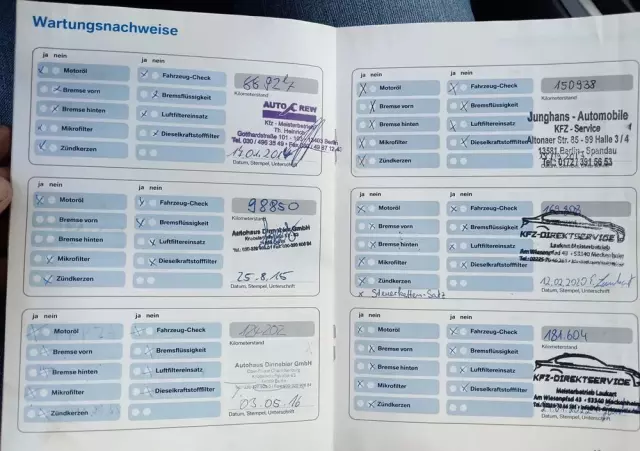 Wartungsnachweise
ja nein
ja nein
Motoröl
Fahrzeug-Check
66.927
Bremse vorn
Bremsflüssigkeit
Kilometerstand
Bremse hinten
Luftfiltereinsatz
AUTO CREW
Kfz - Meisterbetrieb
Th. Heinrich
Mikrofilter
Dieselkraftstofffilter
Zündkerzen
Datum, Stempel, Unterschrift
ja nein
ja nein
Motoröl
Fahrzeug-Check
98850
Bremse vorn
Bremsflüssigkeit
Kilometerstand
Bremse hinten
Luftfiltereinsatz
Autohaus Dinnebier GmbH
Mikrofilter
Dieselkraftstofffilter
Zündkerzen
25.8.15
Datum, Stempel, Unterschrift
ja nein
ja nein
Motoröl
Fahrzeug-Check
Bremse vorn
Bremsflüssigkeit
Kilometerstand
Bremse hinten
Luftfiltereinsatz
Autohaus Dinnebier GmbH
Mikrofilter
Dieselkraftstofffilter
Zündkerzen
03.05.16
Datum, Stempel, Unterschrift
ja nein
ja nein
Motoröl
Fahrzeug-Check
150938
Bremse vorn
Bremsflüssigkeit
Kilometerstand
Bremse hinten
Luftfiltereinsatz
Junghans - Automobile
KFZ - Service
Altonaer Str. 85 - 99 Halle 3 / 4
13581 Berlin - Spandau
Mikrofilter
Dieselkraftstofffilter
Tel.: 0172 / 391 56 53
Zündkerzen
Datum, Stempel, Unterschrift
ja nein
ja nein
Motoröl
Fahrzeug-Check
Bremse vorn
Bremsflüssigkeit
Bremse hinten
Luftfiltereinsatz
KFZ-DIREKTSERVICE
Meisterbetrieb
Am Wiesenpfad 43 - 53340 Meckenheim
Mikrofilter
Dieselkraftstofffilter
Zündkerzen
12.02.2020
x Steuerketten-Satz
Datum, Stempel, Unterschrift
ja nein
ja nein
Motoröl
Fahrzeug-Check
181.604
Bremse vorn
Bremsflüssigkeit
Kilometerstand
Bremse hinten
Luftfiltereinsatz
KFZ-DIREKTSERVICE
Mikrofilter
Dieselkraftstofffilter
Meisterbetrieb Laukart
Am Wiesenpfad 43 - 53340 Meckenheim
Zündkerzen
Datum, Stempel, Unterschrift